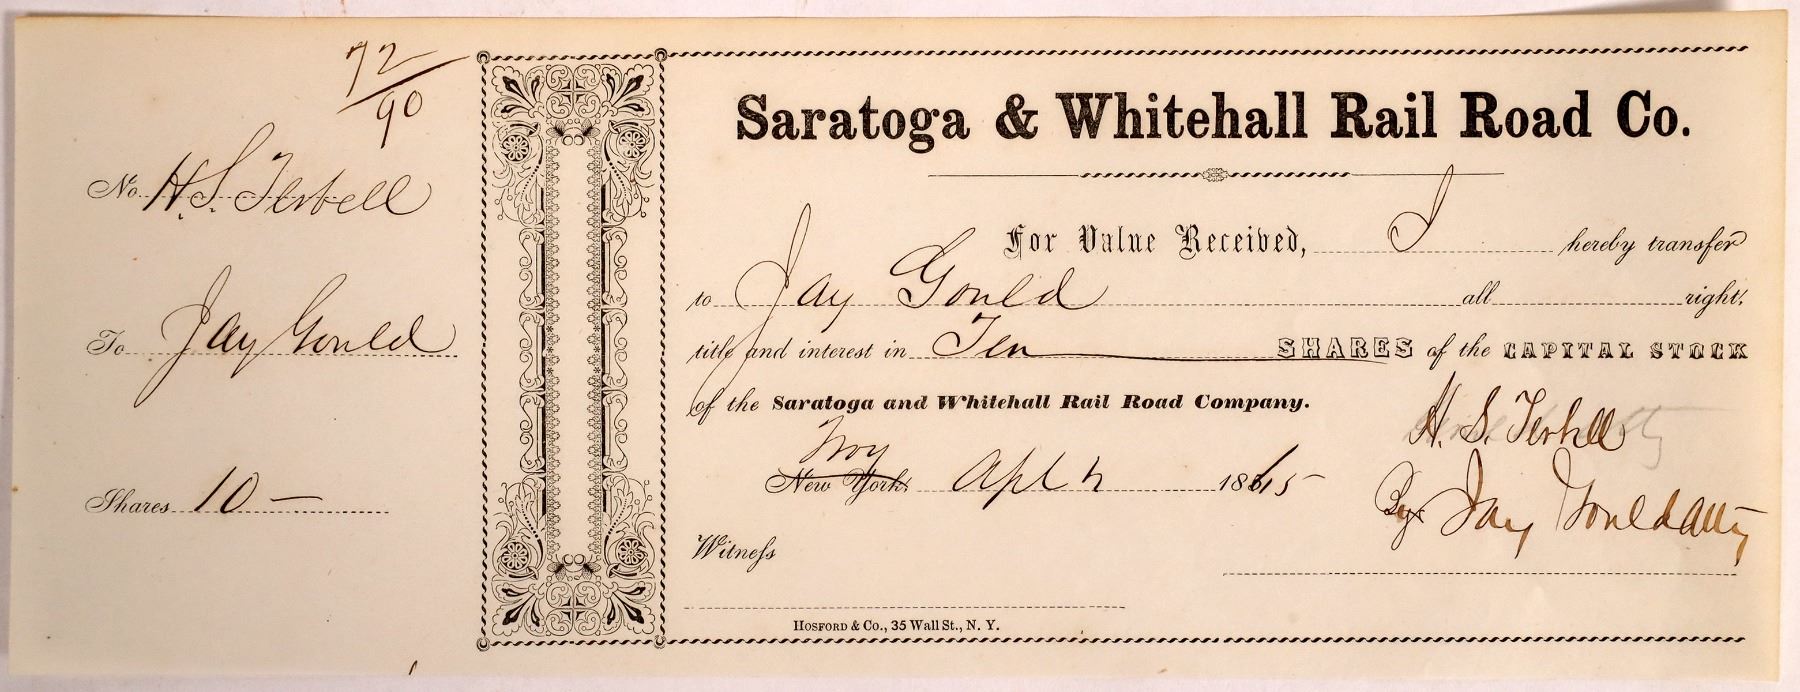 72/90
No. H. S. Terbell
To Jay Gould
Shares 10 —
Saratoga & Whitehall Rail Road Co.
For Value Received, I hereby transfer
to Jay Gould all right,
title and interest in Ten SHARES of the CAPITAL STOCK
of the Saratoga and Whitehall Rail Road Company.
H. S. Terbell
Troy
New York, Apl 1865
By Jay Gould Atty
Witness
HOSFORD & CO., 35 Wall St., N. Y.